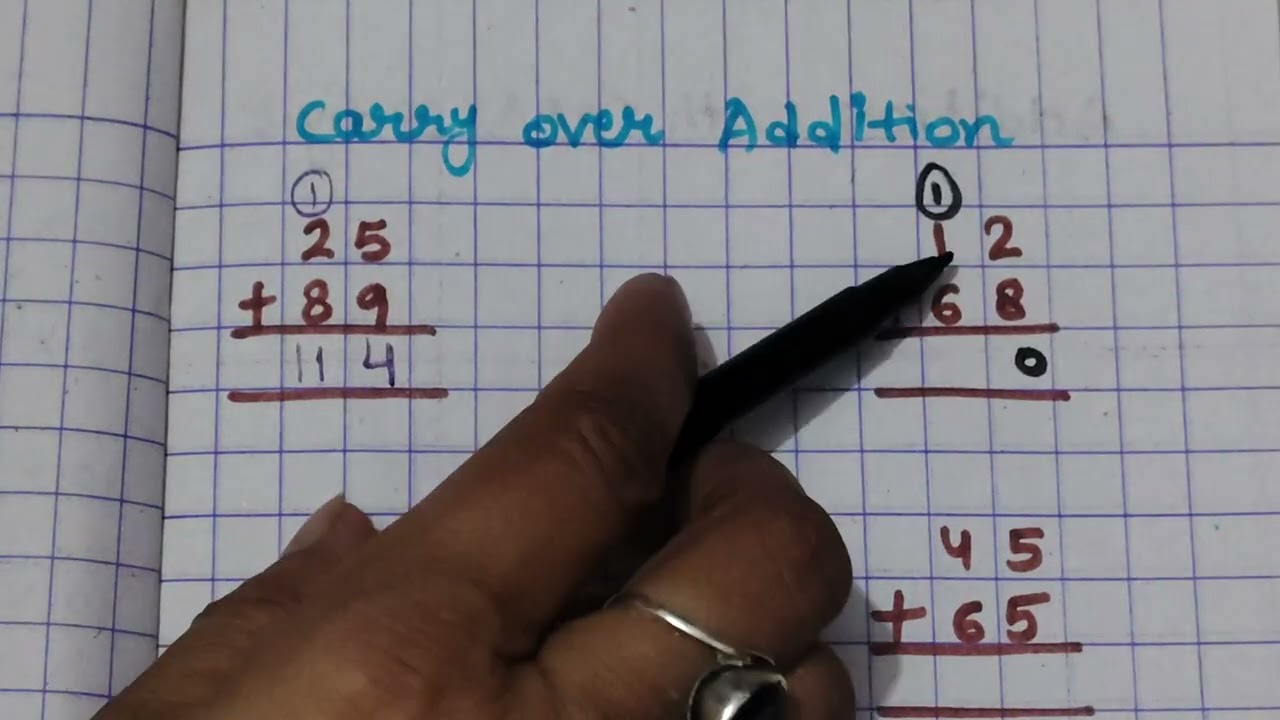 Carry over Addition
1
25
+ 89
114
1
12
68
0
45
+ 65